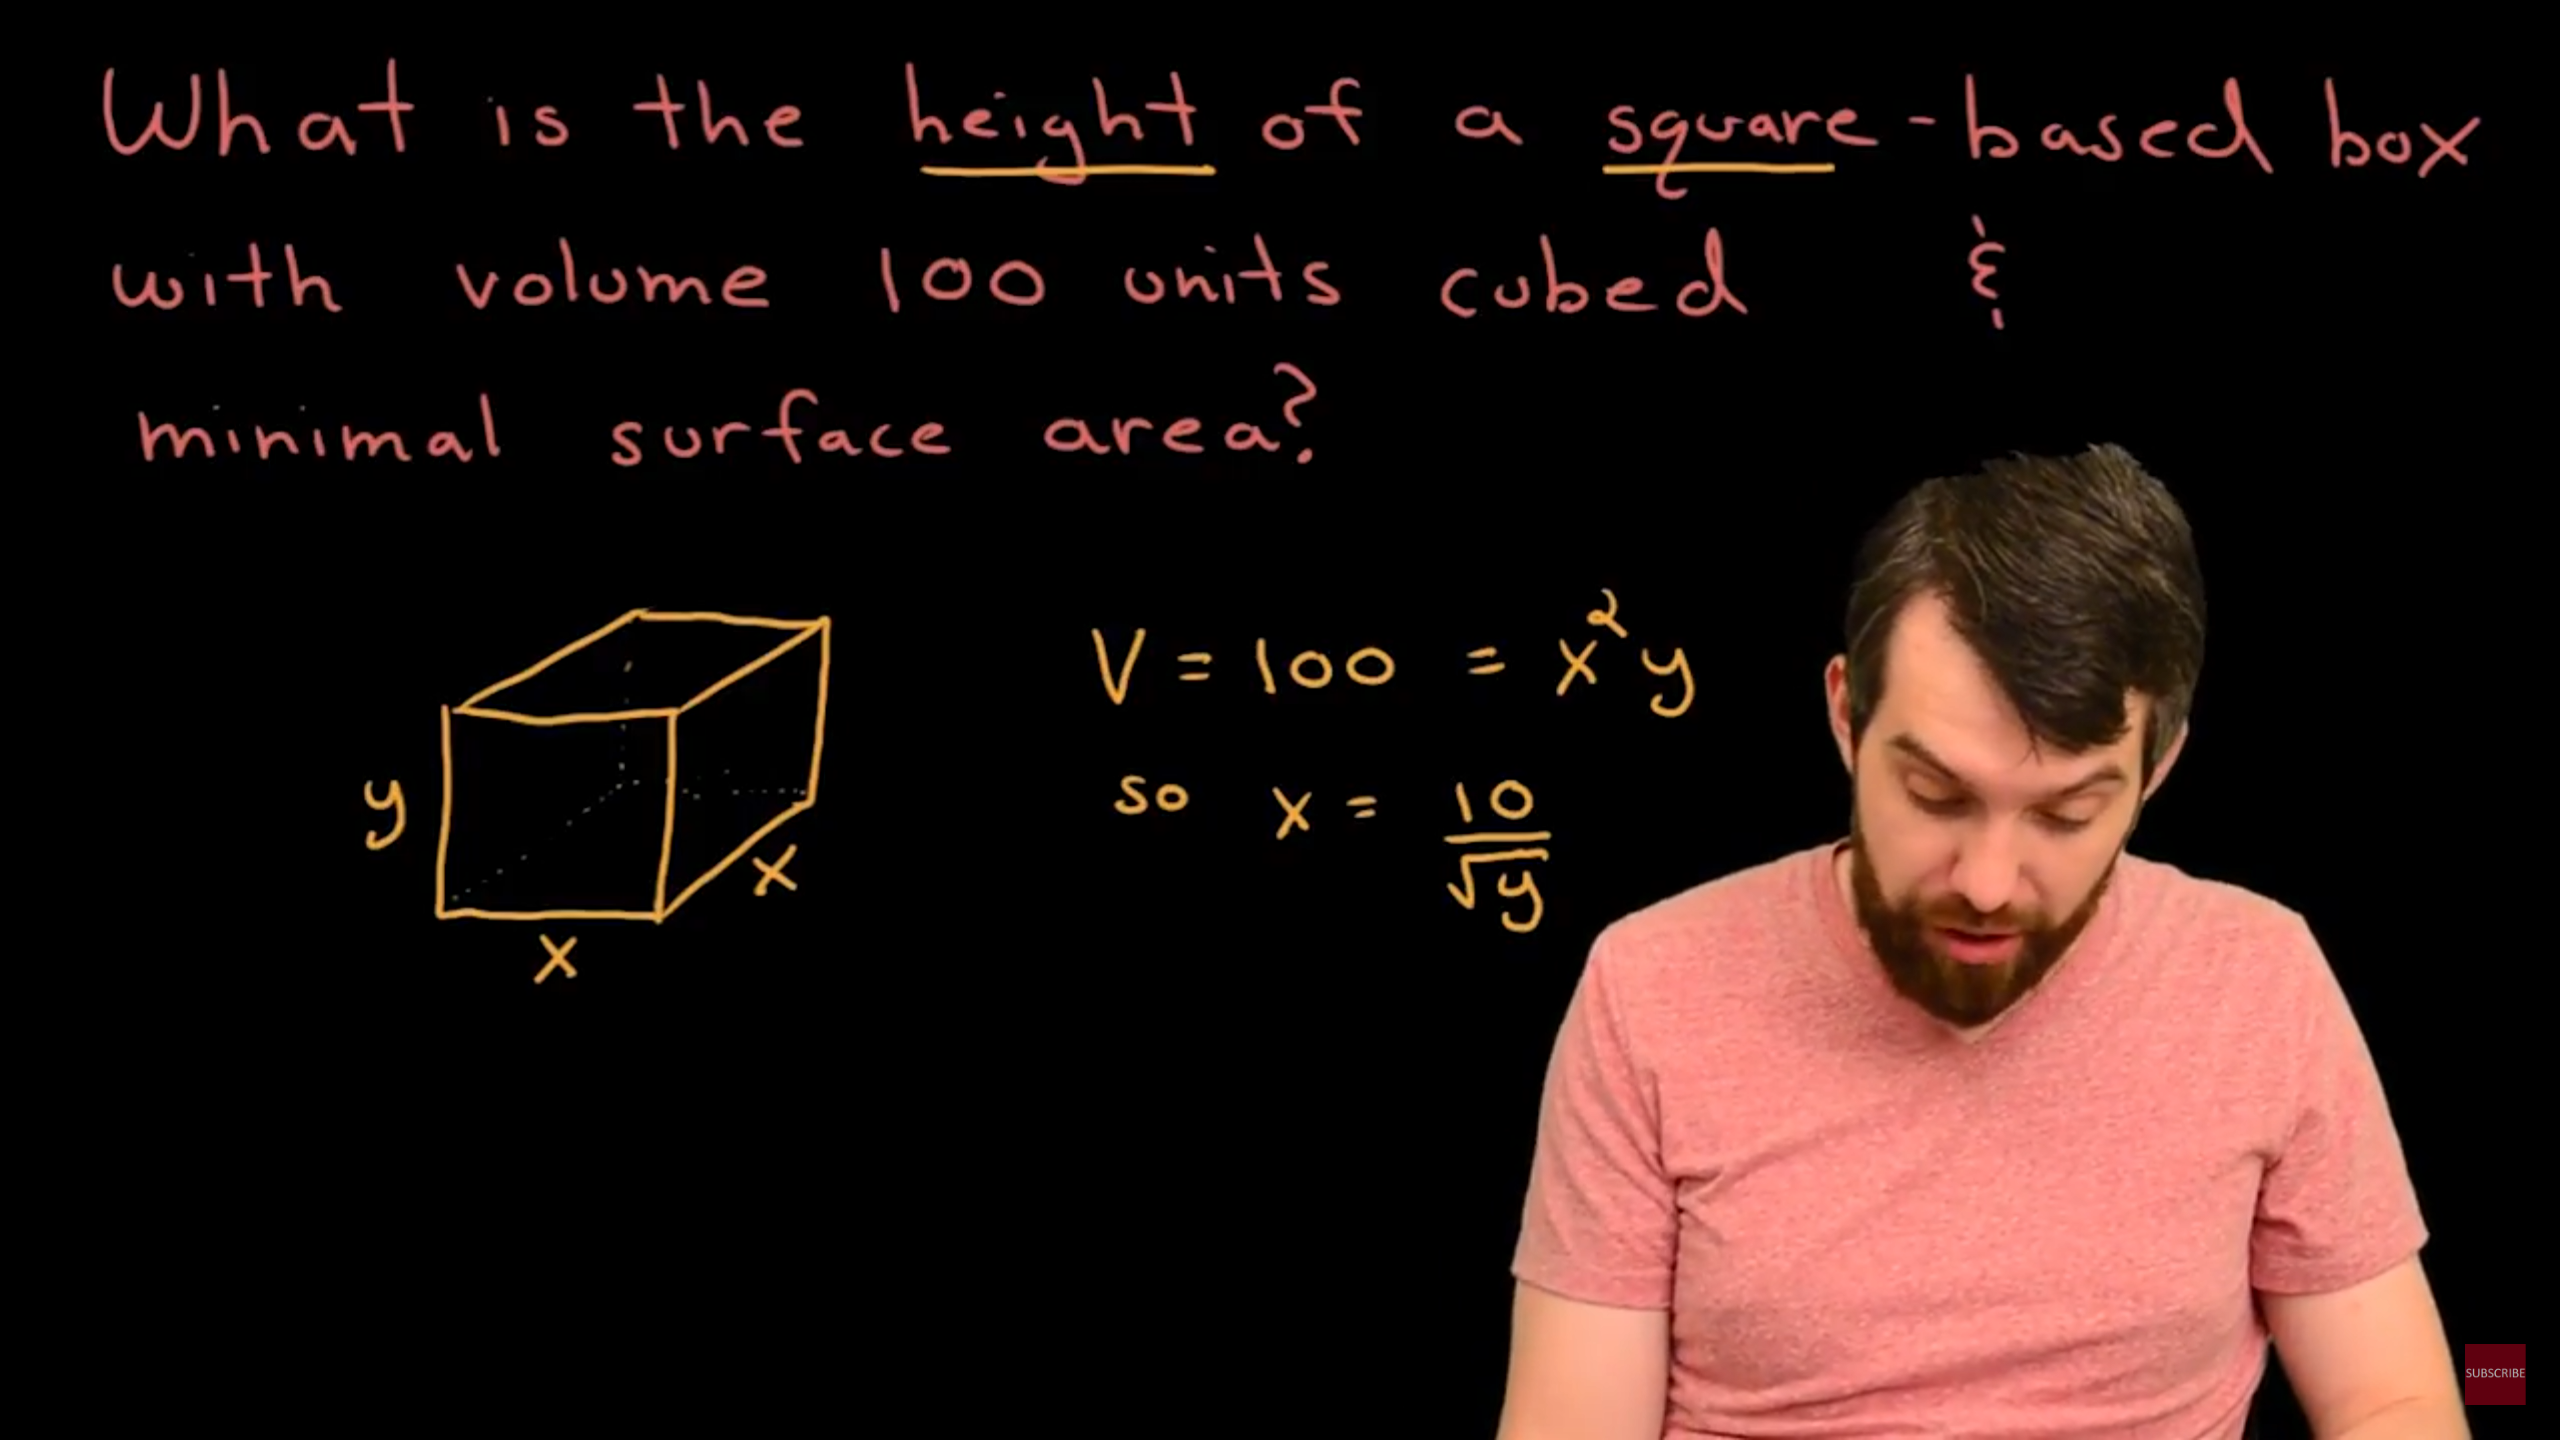 What is the height of a square-based box
with volume 100 units cubed &
minimal surface area?
V = 100 = x²y
so x = 10/√y
y
x
x
SUBSCRIBE